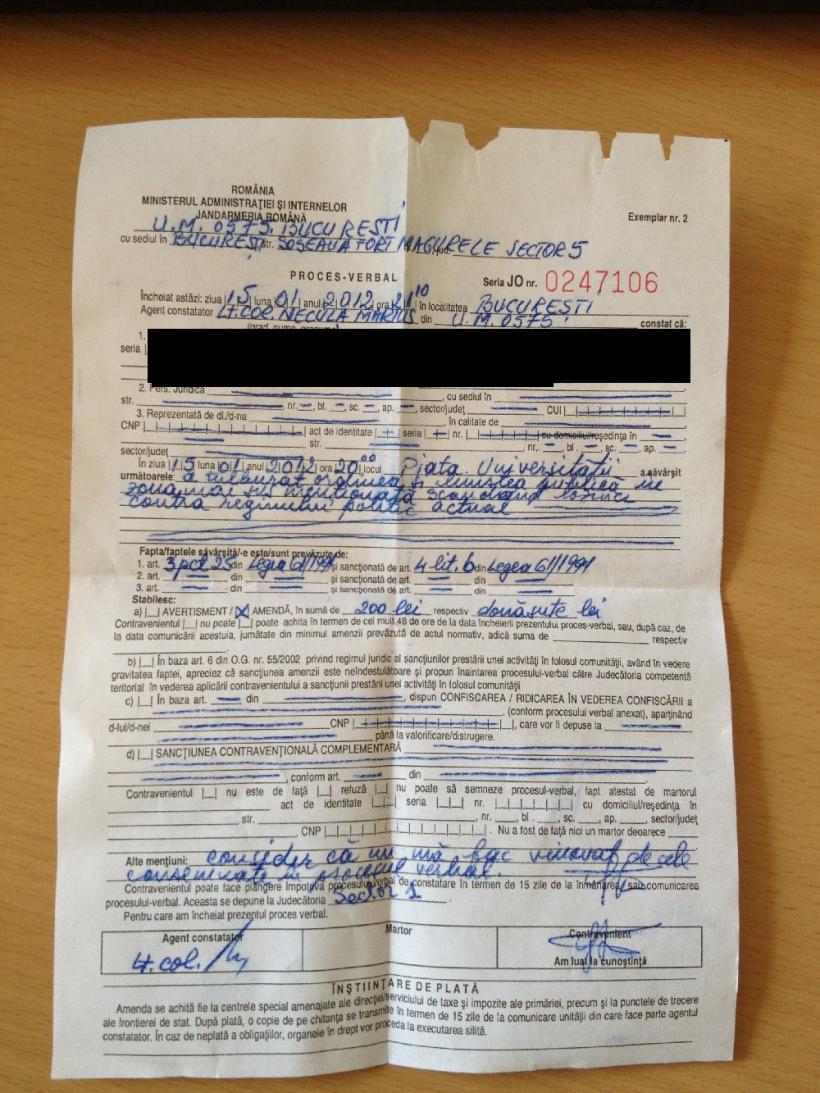 ROMÂNIA
MINISTERUL ADMINISTRAȚIEI ȘI INTERNELOR
JANDARMERIA ROMÂNĂ
Exemplar nr. 2
U.M. 0575 BUCUREȘTI
cu sediul în BUCUREȘTI str. SOSEAUA FORT MAGURELE SECTOR 5
PROCES-VERBAL
Seria JO nr. 0247106
Încheiat astăzi: ziua 15 luna 01 anul 2012 ora 21 10 în localitatea BUCURESTI
Agent constatator LT. COL. NECULA MARIUS din U.M. 0575 constat că:
1.
seria
2. Pers. Juridică , cu sediul în
str. nr. bl. sc. ap. sector/județ CUI
3. Reprezentată de dl./d-na în calitate de
CNP act de identitate seria nr. cu domiciliu/reședința în
str. nr. bl. sc. ap.
sector/județ
În ziua 15 luna 01 anul 2012 ora 20 00 locul Piata Universitatii a săvârșit
următoarele: a tulburat ordinea si linistea publică în
zona mai sus mentionată scandand lozinci
contra regimului politic actual
Fapta/faptele săvârșită/-e este/sunt prevăzute de:
1. art. 3 pct 25 din Legea 61/1991 și sancționată de art. 4 lit. b din Legea 61/1991
2. art. din și sancționată de art. din
3. art. din și sancționată de art. din
Stabilesc:
a) AVERTISMENT / X AMENDĂ, în sumă de 200 lei respectiv douăsute lei
Contravenientul nu poate poate achita în termen de cel mult 48 de ore de la data încheierii prezentului proces-verbal, sau, după caz, de
la data comunicării acestuia, jumătate din minimul amenzii prevăzută de actul normativ, adică suma de respectiv
b) În baza art. 6 din O.G. nr. 55/2002 privind regimul juridic al sancțiunilor prestării unei activități în folosul comunității, având în vedere
gravitatea faptei, apreciez că sancțiunea amenzii este neîndestulătoare și propun înaintarea procesului-verbal către Judecătoria competentă
teritorial în vederea aplicării contravenientului a sancțiunii prestării unei activități în folosul comunității
c) În baza art. din , dispun CONFISCAREA / RIDICAREA ÎN VEDEREA CONFISCĂRII a
(conform procesului verbal anexat), aparținând
d-lui/d-nei CNP , care vor fi depuse la
până la valorificare/distrugere.
d) SANCȚIUNEA CONTRAVENȚIONALĂ COMPLEMENTARĂ
, conform art. din
Contravenientul nu este de față refuză nu poate să semneze procesul-verbal, fapt atestat de martorul
act de identitate seria nr. cu domiciliu/reședința în
str. , nr. , bl. , sc. , ap. , sector/județ
, CNP . Nu a fost de față nici un martor deoarece
Alte mențiuni: consider că nu mă fac vinovat de cele
consemnate în procesul verbal.
Contravenientul poate face plângere împotriva procesului-verbal de constatare în termen de 15 zile de la înmânarea sau comunicarea
procesului-verbal. Aceasta se depune la Judecătoria Sector 1
Pentru care am încheiat prezentul proces verbal.
Agent constatator
Martor
Contravenient
Lt. col.
Am luat la cunoștință
ÎNȘTIINȚARE DE PLATĂ
Amenda se achită fie la centrele special amenajate ale direcției/serviciului de taxe și impozite ale primăriei, precum și la punctele de trecere
ale frontierei de stat. După plată, o copie de pe chitanța se transmite în termen de 15 zile de la comunicare unității din care face parte agentul
constatator. În caz de neplată a obligațiilor, organele în drept vor proceda la executarea silită.